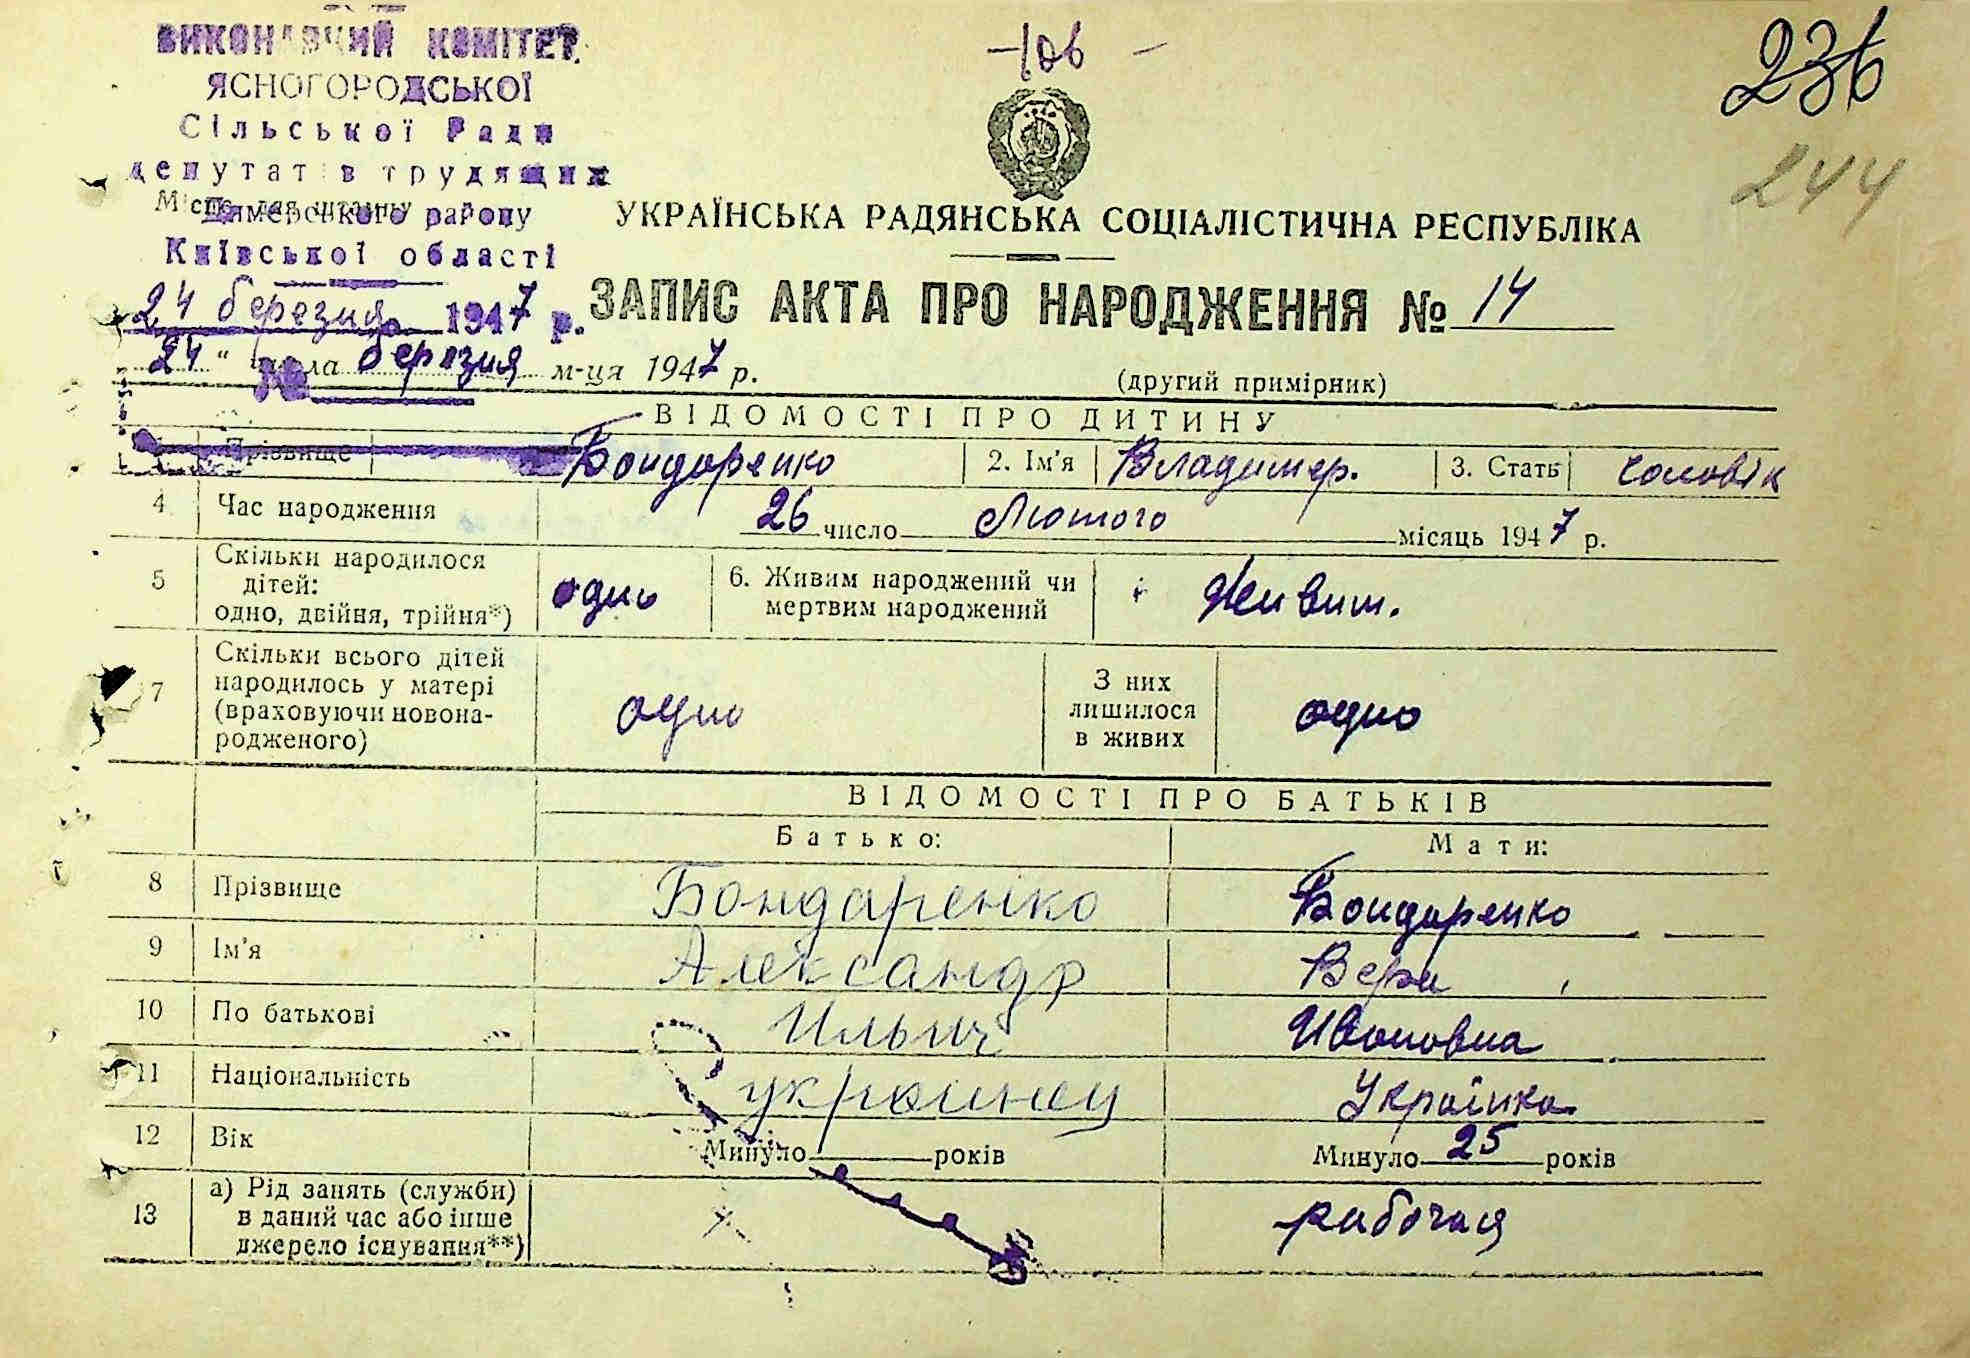 ВИКОНАВЧИЙ КОМІТЕТ
ЯСНОГОРОДСЬКОЇ
Сільської Ради
депутатів трудящих
Димерського району
Київської області
24 березня 1947 р.
№
-106-
236
244
УКРАЇНСЬКА РАДЯНСЬКА СОЦІАЛІСТИЧНА РЕСПУБЛІКА
ЗАПИС АКТА ПРО НАРОДЖЕННЯ № 14
24 " числа березня м-ця 1947 р.
(другий примірник)
ВІДОМОСТІ ПРО ДИТИНУ
Прізвище Бондаренко 2. Ім'я Владимер. 3. Стать чоловік
4 Час народження 26 число Лютого місяць 1947 р.
5 Скільки народилося дітей: одно, двійня, трійня*) одно 6. Живим народжений чи мертвим народжений Живим.
7 Скільки всього дітей народилось у матері (враховуючи новонародженого) одно З них лишилося в живих одно
ВІДОМОСТІ ПРО БАТЬКІВ
Батько: Мати:
8 Прізвище Бондаренко Бондаренко
9 Ім'я Александр Вера
10 По батькові Ильич Ивановна
11 Національність украинец Українка
12 Вік Минуло років Минуло 25 років
13 а) Рід занять (служби) в даний час або інше джерело існування**) рабочая